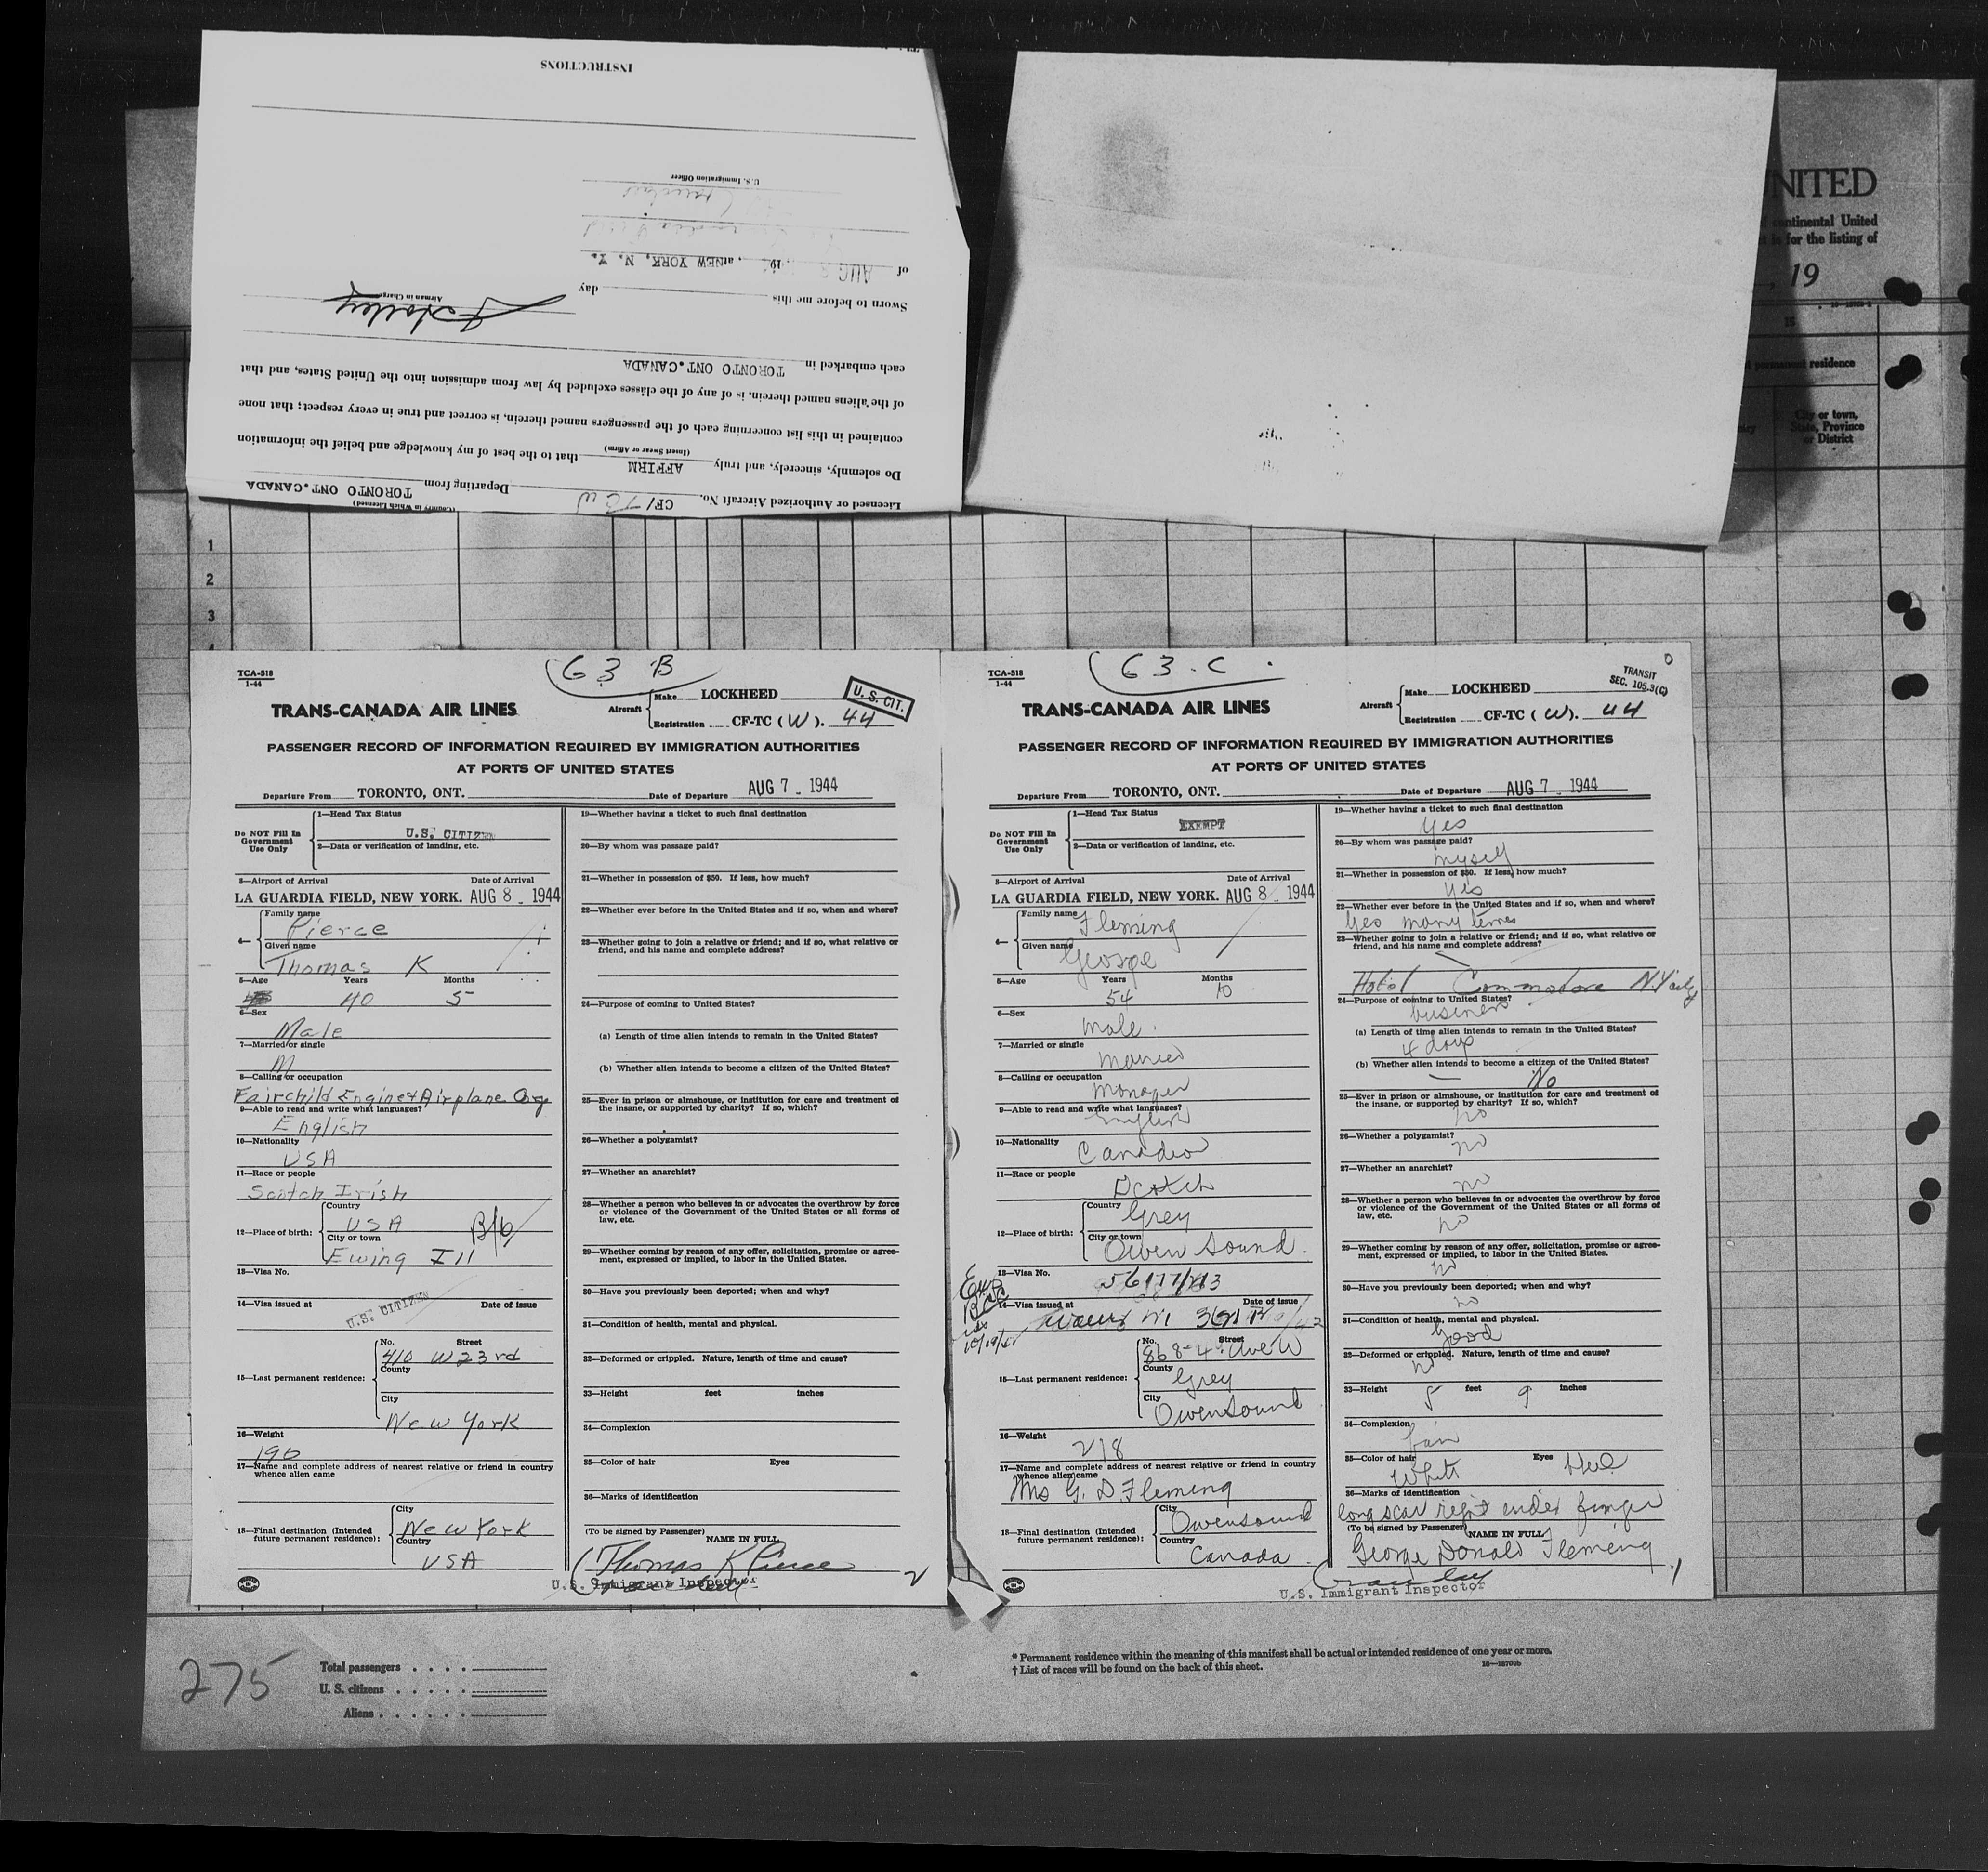 INSTRUCTIONS
U.S. Immigration Officer
of AUG 8 , 19 , at NEW YORK, N. Y.
Sworn before me this day
Airman in Charge
each embarked in TORONTO ONT.CANADA
of the aliens named therein, is of any of the classes excluded by law from admission into the United States, and that
contained in this list concerning each of the passengers named therein, is correct and true in every respect; that none
Do solemnly, sincerely, and truly AFFIRM that to the best of my knowledge and belief the information
(Insert Swear or Affirm)
Licensed or Authorized Aircraft No. CF/TCW Departing from TORONTO ONT.CANADA
(Country in Which Licensed)
NITED
continental United
for the listing of
, 19
15
permanent residence
City or town,
State, Province
or District
1
2
3
63 B
TCA-518
1-44
TRANS-CANADA AIR LINES
Aircraft
Make LOCKHEED
Registration CF-TC (W). 44
U. S. CIT.
PASSENGER RECORD OF INFORMATION REQUIRED BY IMMIGRATION AUTHORITIES
AT PORTS OF UNITED STATES
Departure From TORONTO, ONT. Date of Departure AUG 7 - 1944
Do NOT Fill In
Government
Use Only
1—Head Tax Status
U.S. CITIZEN
2—Data or verification of landing, etc.
3—Airport of Arrival Date of Arrival
LA GUARDIA FIELD, NEW YORK. AUG 8 - 1944
4—
Family name
Pierce
Given name
Thomas K
5—Age Years Months
40 5
6—Sex
Male
7—Married or single
M
8—Calling or occupation
Fairchild Engine & Airplane Corp
9—Able to read and write what languages?
English
10—Nationality
USA
11—Race or people
Scotch Irish
12—Place of birth:
Country
USA
City or town
Ewing Ill
13—Visa No.
14—Visa issued at Date of issue
U.S. CITIZEN
15—Last permanent residence:
No. Street
410 W 23rd
County
City
New York
16—Weight
190
17—Name and complete address of nearest relative or friend in country
whence alien came
18—Final destination (Intended
future permanent residence):
City
New York
Country
USA
19—Whether having a ticket to such final destination
20—By whom was passage paid?
21—Whether in possession of $50. If less, how much?
22—Whether ever before in the United States and if so, when and where?
23—Whether going to join a relative or friend; and if so, what relative or
friend, and his name and complete address?
24—Purpose of coming to United States?
(a) Length of time alien intends to remain in the United States?
(b) Whether alien intends to become a citizen of the United States?
25—Ever in prison or almshouse, or institution for care and treatment of
the insane, or supported by charity? If so, which?
26—Whether a polygamist?
27—Whether an anarchist?
28—Whether a person who believes in or advocates the overthrow by force
or violence of the Government of the United States or all forms of
law, etc.
29—Whether coming by reason of any offer, solicitation, promise or agree-
ment, expressed or implied, to labor in the United States.
30—Have you previously been deported; when and why?
31—Condition of health, mental and physical.
32—Deformed or crippled. Nature, length of time and cause?
33—Height feet inches
34—Complexion
35—Color of hair Eyes
36—Marks of identification
(To be signed by Passenger) NAME IN FULL
Thomas K Pierce
U.S. Immigrant Inspector
2
63 - C
TCA-518
1-44
TRANS-CANADA AIR LINES
Aircraft
Make LOCKHEED
Registration CF-TC (W). 44
TRANSIT
SEC. 105.3(C)
PASSENGER RECORD OF INFORMATION REQUIRED BY IMMIGRATION AUTHORITIES
AT PORTS OF UNITED STATES
Departure From TORONTO, ONT. Date of Departure AUG 7 - 1944
Do NOT Fill In
Government
Use Only
1—Head Tax Status
EXEMPT
2—Data or verification of landing, etc.
3—Airport of Arrival Date of Arrival
LA GUARDIA FIELD, NEW YORK. AUG 8 - 1944
4—
Family name
Fleming
Given name
George
5—Age Years Months
54 10
6—Sex
male
7—Married or single
married
8—Calling or occupation
Manager
9—Able to read and write what languages?
English
10—Nationality
Canadian
11—Race or people
Scotch
12—Place of birth:
Country
Grey
City or town
Owen Sound
13—Visa No.
14—Visa issued at Date of issue
15—Last permanent residence:
No. Street
868-4th Ave W
County
Grey
City
Owen Sound
16—Weight
218
17—Name and complete address of nearest relative or friend in country
whence alien came
Mrs G. D Fleming
18—Final destination (Intended
future permanent residence):
City
Owensound
Country
Canada
19—Whether having a ticket to such final destination
Yes
20—By whom was passage paid?
myself
21—Whether in possession of $50. If less, how much?
Yes
22—Whether ever before in the United States and if so, when and where?
Yes many times
23—Whether going to join a relative or friend; and if so, what relative or
friend, and his name and complete address?
Hotel Commodore N.Y city
24—Purpose of coming to United States?
business
(a) Length of time alien intends to remain in the United States?
4 days
(b) Whether alien intends to become a citizen of the United States?
No
25—Ever in prison or almshouse, or institution for care and treatment of
the insane, or supported by charity? If so, which?
no
26—Whether a polygamist?
no
27—Whether an anarchist?
no
28—Whether a person who believes in or advocates the overthrow by force
or violence of the Government of the United States or all forms of
law, etc.
no
29—Whether coming by reason of any offer, solicitation, promise or agree-
ment, expressed or implied, to labor in the United States.
no
30—Have you previously been deported; when and why?
no
31—Condition of health, mental and physical.
good
32—Deformed or crippled. Nature, length of time and cause?
no
33—Height 5 feet 9 inches
34—Complexion
fair
35—Color of hair Eyes
White
36—Marks of identification
long scar right under finger
(To be signed by Passenger) NAME IN FULL
George Donald Fleming
U.S. Immigrant Inspector
1
275
Total passengers
U. S. citizens
Aliens
* Permanent residence within the meaning of this manifest shall be actual or intended residence of one year or more.
† List of races will be found on the back of this sheet.